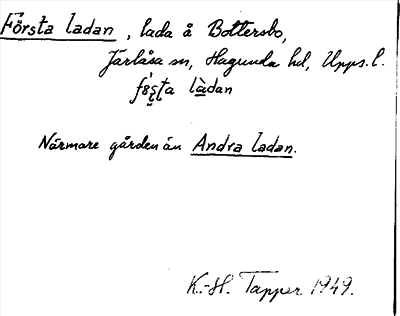 Första ladan, lada å Bottersbo,
Järlåsa sn, Hagunda hd, Upps. l.
Närmare gården än Andra ladan.
K.-H. Tapper 1949.